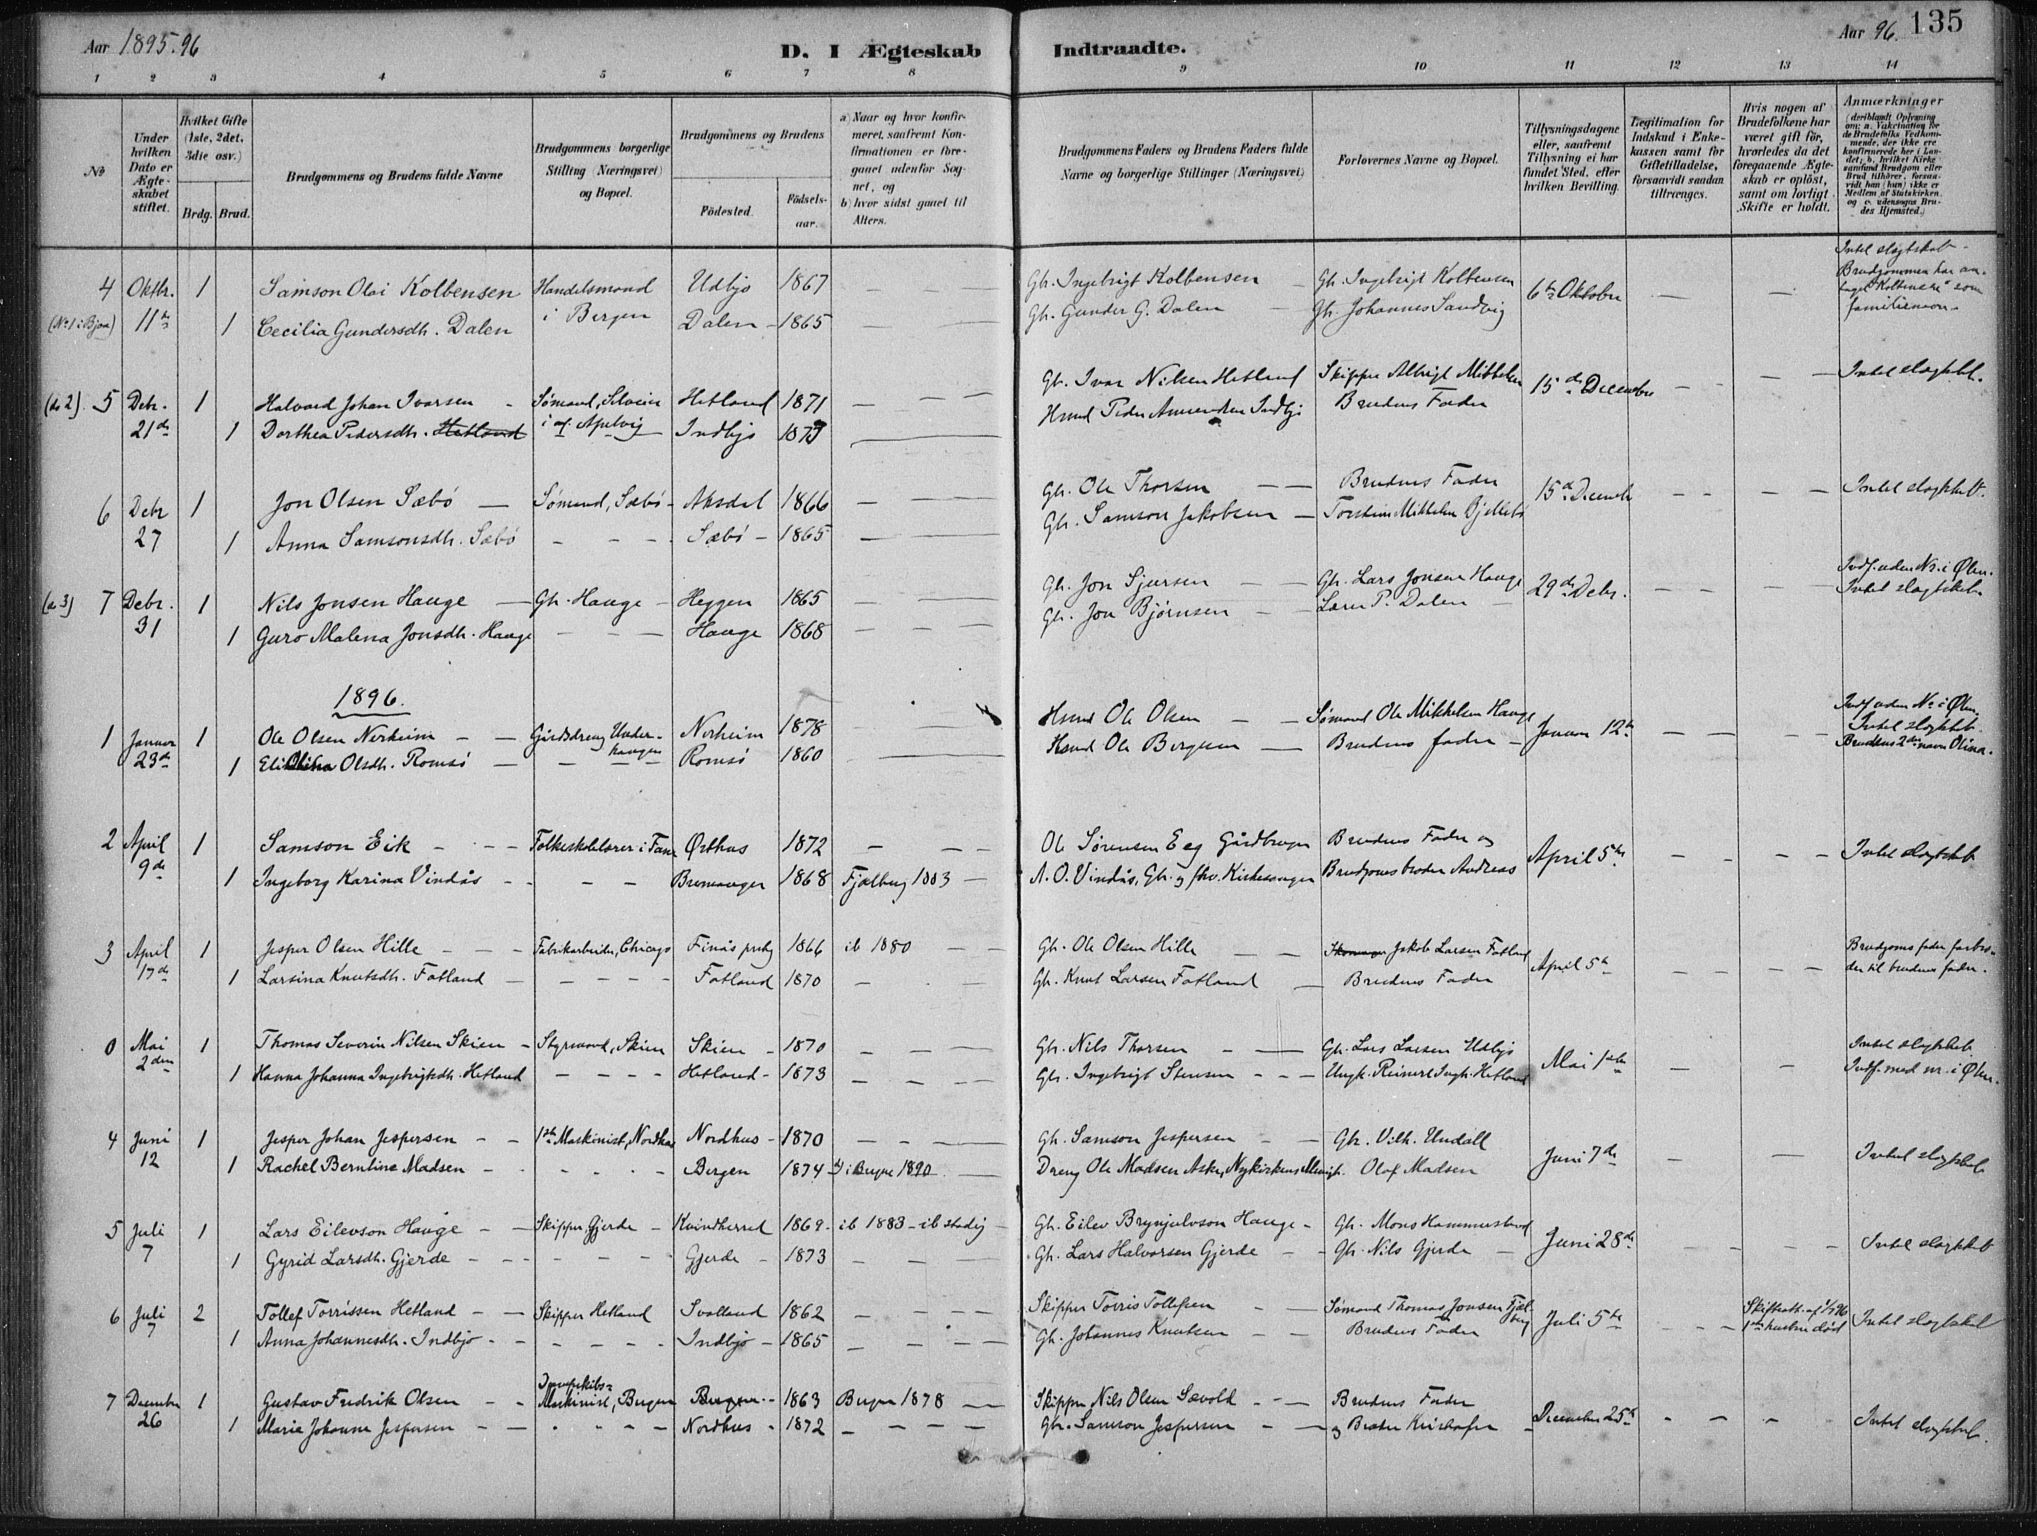 Aar 1895.96
D. I Ægteskab Indtraadte.
Aar 96. 135
1 2 3 4 5 6 7 8 9 10 11 12 13 14
No
Under hvilken Dato er Ægteskabet stiftet.
Hvilket Gifte (1ste, 2det, 3die osv.)
Brdg. Brud.
Brudgommens og Brudens fulde Navne
Brudgommens borgerlige Stilling (Næringsvei) og Bopæl.
Brudgommens og Brudens
Födested. Födselsaar.
a) Naar og hvor konfirmeret, saafremt Konfirmationen er foregaaet udenfor Sognet, og
b) hvor sidst gaaet til Alters.
Brudgommens Faders og Brudens Faders fulde Navne og borgerlige Stillinger (Næringsvei)
Forlovernes Navne og Bopæl.
Tillysningsdagene eller, saafremt Tillysning ei har fundet Sted, efter hvilken Bevilling.
Legitimation for Indskud i Enkekassen samt for Giftetilladelse, forsaavidt saadan tiltrænges.
Hvis nogen af Brudefolkene har været gift för, hvorledes da det foregaaende Ægteskab er oplöst, samt om lovligt Skifte er holdt.
Anmærkninger (deriblandt Oplysning om: a. Vakcination for de Brudefolks Vedkommende, der ikke ere konfirmerede her i Landet; b. hvilket Kirkesamfund Brudgom eller Brud tilhörer, forsaavidt han (hun) ikke er Medlem af Statskirken, og c. udensogns Brudes Hjemsted.)
4 Oktbr. 1 Samson Olai Kolbensen Handelsmand Udbjo 1867 — — Gb. Ingebrigt Kolbensen Gb. Ingebrigt Kolbensen 6te Oktober — — Intet slægtskab. Brudgommen har antaget "Kolbensen" som familienavn.
(No 1 i Bjoa) 11te 1 Cecilia Gundersdh. Dalen i Bergen Dalen 1865 — — Gb. Gunder G. Dalen Gb. Johannes Sandvig
(do 2) 5 Debr. 1 Halvard Johan Ivarsen Sømand, Hetland 1871 — — Gb. Ivar Nilsen Hetland Skipper Albrigt Mikkelsen 15de December — — Intet slægtskb.
21de 1 Dorthea Pedersdh. Hetland Apelvig Indbjo 1873 Hsmd Peder Amundsen Indbjo Brudens Fader
6 Debr 1 Jon Olsen Sæbø Sømand, Sæbø Aksdal 1866 — — Gb. Ole Thorsen Brudens Fader 15de Decemb — — Intet slægtskb.
27 1 Anna Samsonsdh. Sæbø — Sæbø 1865 — — Gb. Samson Jakobsen Torstein Mikkelsen
(do 3) 7 Debr. 1 Nils Jonsen Hauge Gb. Hauge Heggen 1865 — — Gb. Jon Sjursen Gb. Lars Jonsen Hauge 29de Debr. — — Indf. uden Nr. i Ølen. Intet slægtskab.
31 1 Guro Malena Jonsdh. Hauge — Hauge 1868 — — Gb. Jon Bjørnsen Lærer P. Dalen
1896.
1 Januar 1 Ole Olsen Nerheim Gårdsdreng Underhaugen Nerheim 1878 — — Hsmd Ole Olsen Sømand Ole Mikkelsen Hauge Januar 12te — — Indf. uden Nr. i Ølen. Intet slægtskab. Brudens 2det navn Olina.
23de 1 Eli Olina Olsdh. Romsø — Romsø 1860 Hsmd Ole Bergesen Brudens fader
2 April 1 Samson Eik Folkeskolelærer i Fane Ørthus 1872 — — Ole Sørensen Eeg Gårdbruger Brudens Fader og April 5te — — Intet slægtskab
9de 1 Ingeborg Karina Vindås — Bremanger 1868 Fjælberg 1883 A. O. Vindås, Gb. og fhv. Kirkesanger Brudgoms broder Andreas
3 April 1 Jesper Olsen Hille Fabrikarbeider, Chicago Finås 1866 ib 1880 Gb. Ole Olsen Hille Jakob Larsen Fatland April 5te — — Brudgoms fader farbroder til brudens fader.
17de 1 Larsina Knutsdh. Fatland — Fatland 1870 — — Gb. Knut Larsen Fatland Brudens Fader
0 Mai 1 Thomas Severin Nilsen Skien Styrmand, Skien Skien 1870 — — Gb. Nils Thorsen Gb. Lars Larsen Udbjo Mai 1ste — — Intet slægtskab. Indf. med nr. i Ølen.
2den 1 Hanna Johanna Ingebrigtsdh. Hetland — Hetland 1873 — — Gb. Ingebrigt Stensen Ungk. Reinert Ingb. Hetland
4 Juni 1 Jesper Johan Jespersen 1ste Maskinist, Nordhus Nordhus 1870 — — Gb. Samson Jespersen Gb. Vilh. Undall Juni 7de — — Intet slægtskab.
12 1 Rachel Berntine Madsen — Bergen 1874 i Bergen 1890 Dreng Ole Madsen Aske, Nykirkens Menigh. Olaf Madsen
5 Juli 1 Lars Eilevson Hauge Skipper, Gjerde Kvindherred 1869 ib 1883 — ib stadig Gb. Eilev Brynjulvson Hauge Gb. Mons Hammersland Juni 28de — — Intet slægtskab
7 1 Gyrid Larsdh. Gjerde — Gjerde 1873 — — Gb. Lars Halvorsen Gjerde Gb. Nils Gjerde
6 Juli 2 Tollef Torrissen Hetland Skipper Hetland Svolland 1862 — — Skipper Torris Tollefsen Sømand Thomas Jonsen Fjælberg Juli 5te — Skifteatt. af 1/7 96 1ste hustru død Intet slægtskab
7 1 Anna Johannesdh. Indbjo — Indbjo 1865 — — Gb. Johannes Knutsen Brudens Fader
7 December 1 Gustav Fredrik Olsen Dampskibs-Maskinist, Bergen Bergen 1863 Bergen 1878 Skipper Nils Olsen Sævold Brudens Fader December 25de — — Intet slægtskab.
26 1 Marie Johanne Jespersen — Nordhus 1872 — — Gb. Samson Jespersen og Broder Kristofer